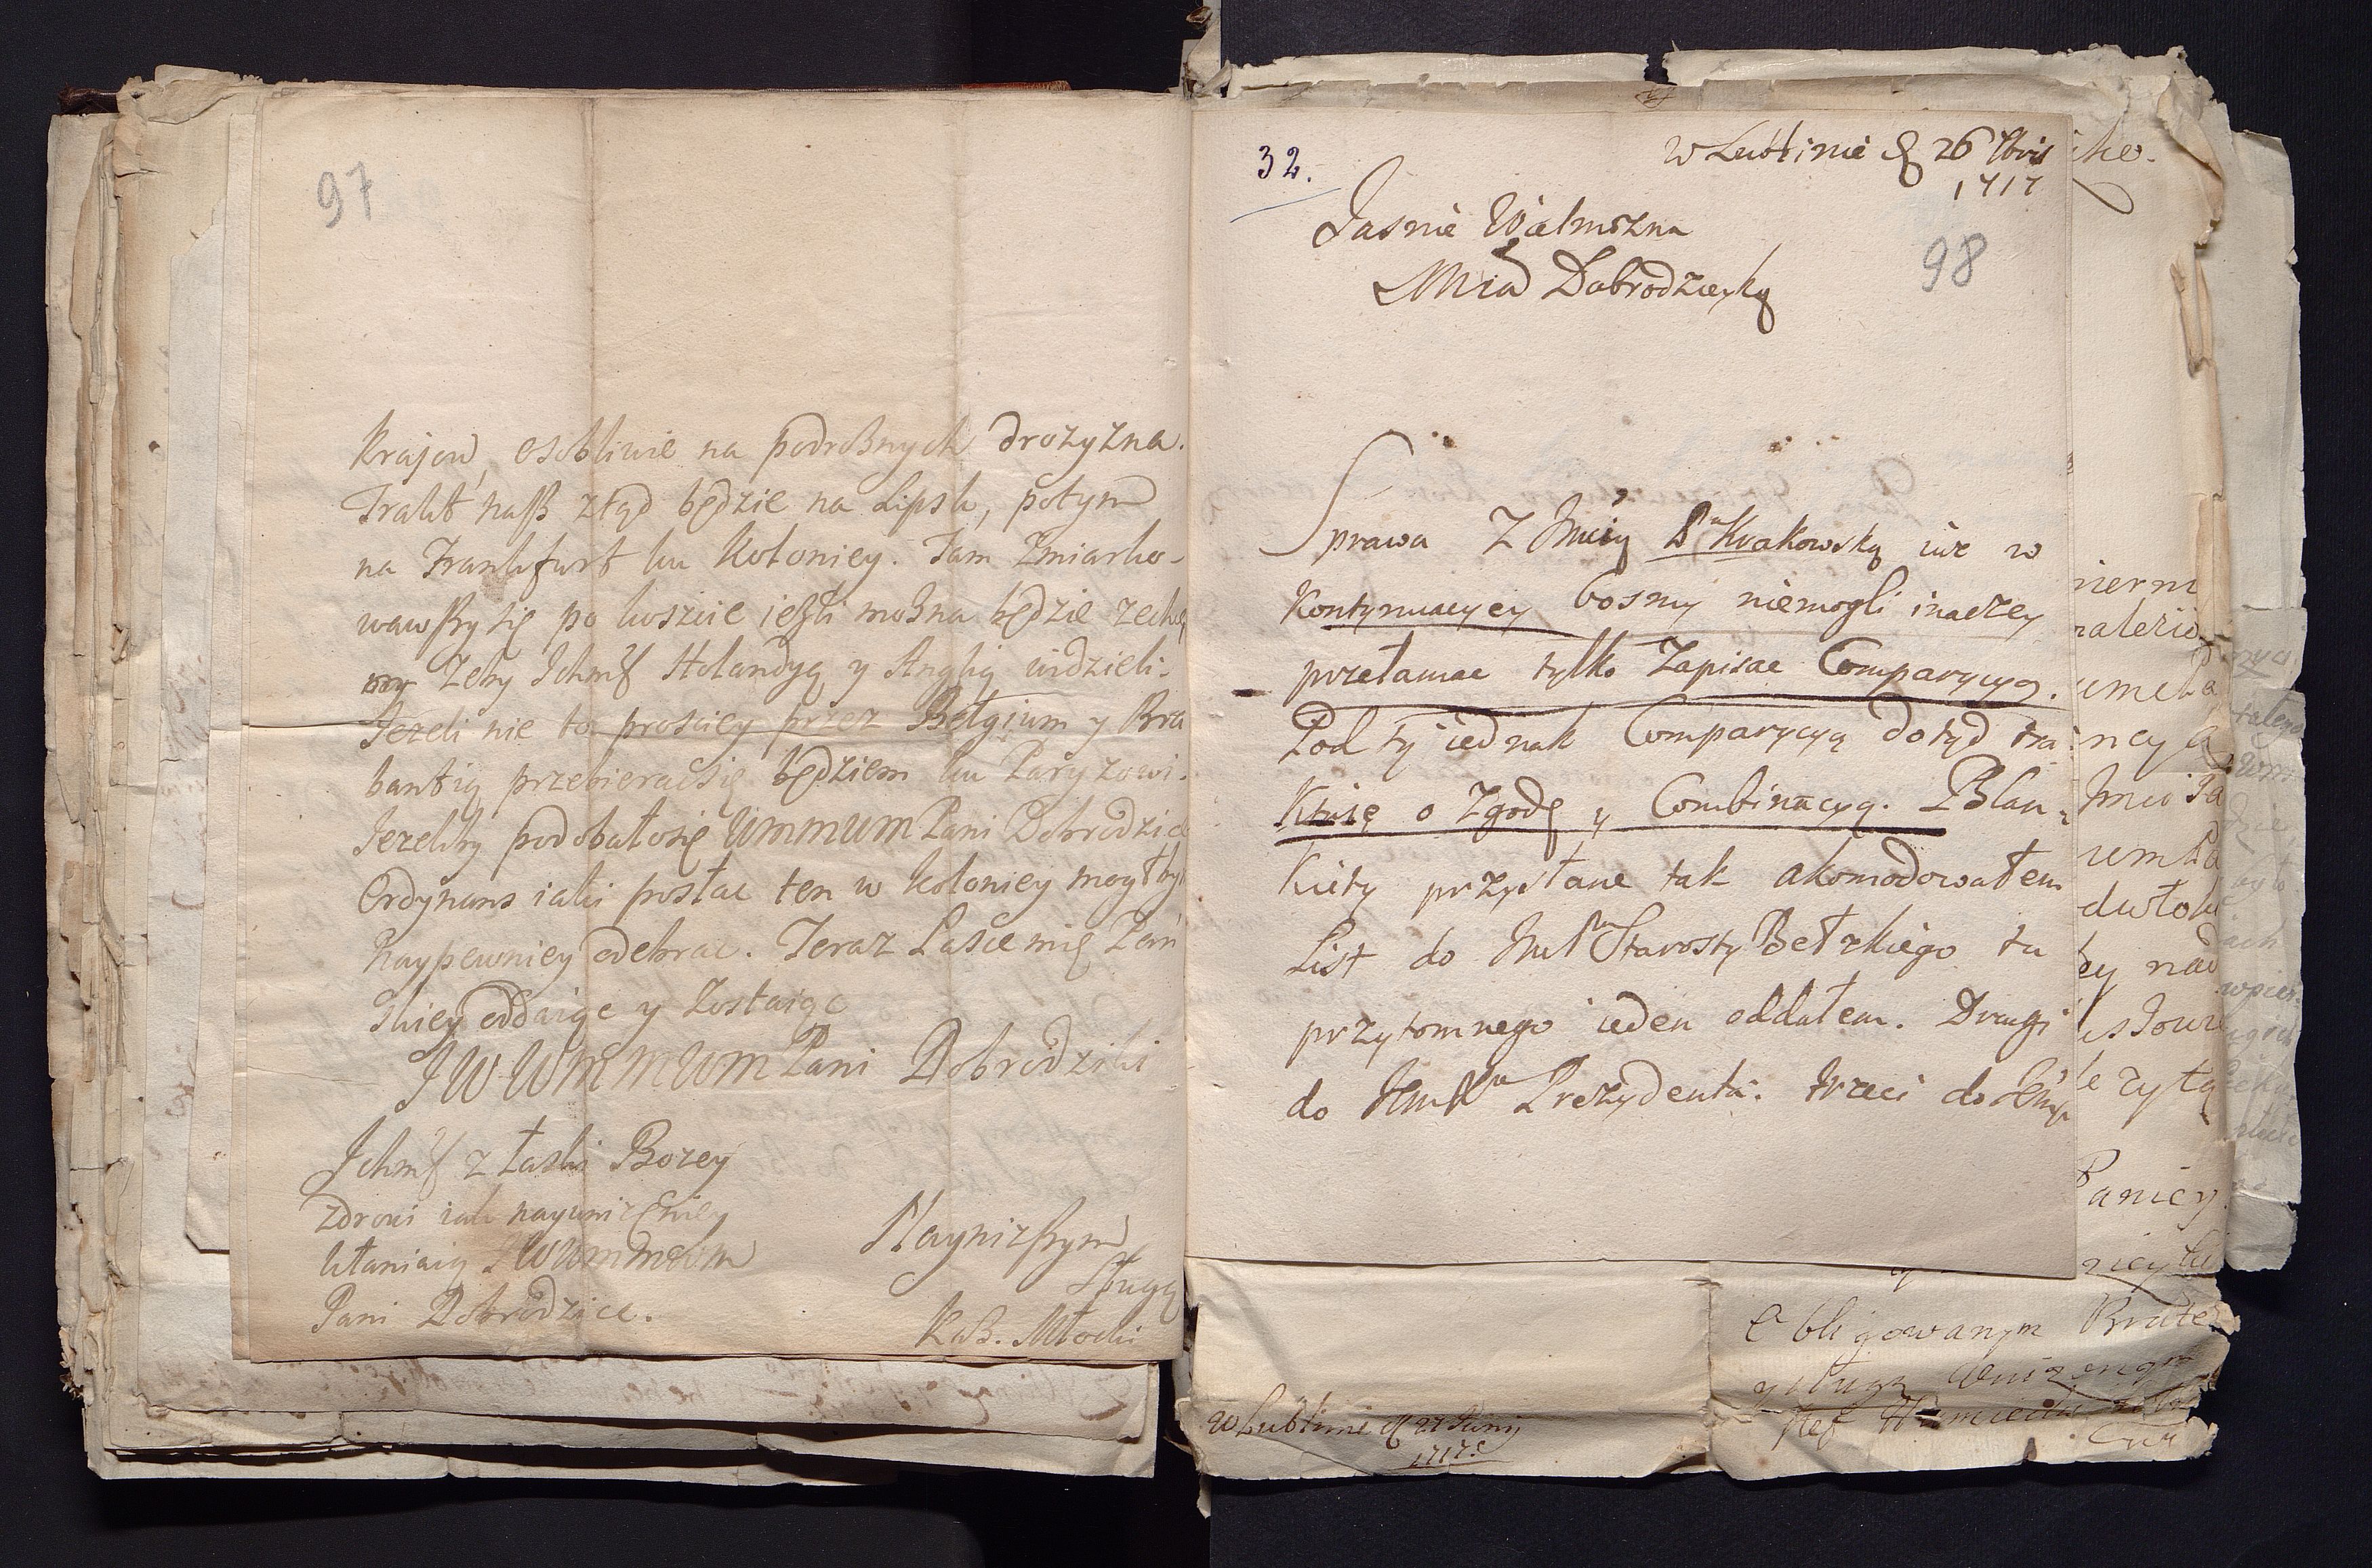 97
Krajow, osobliwie na podrożnych drożyzna.
Trakt nasz ztąd będzie na Lipsk, potym
na Frankfurt ku Koloniey. Tam zmiarko-
wawszy się po koszcie ieżli można będzie zechcę
Zeby Ichmć Holandyą y Anglią widzieli.
Jezeli nie to prosciey przez Belgium y Bra
bantią przebieracsię będziem ku Paryzowi.
Jezeliby podobałosię WMMWM Pani Dobrodzice
Ordynans iaki posłac ten w Koloniey mogłby
naypewniey odebrac. Teraz Łasce mię Pań
skiey oddaiąc y zostaiąc
JWWMMWM Pani Dobrodziki
Ichmć z łaski Bozey
zdrowi iak nayunizeniey
kłaniaią JWWMMWM
Pani Dobrodzice.
Naynizszym
Sługą
Kaz. Młocki
32.
w Lublinie d 26 Xbris
1717
98
Jasnie Wielmozna
Mcia Dobrodzieyko
Sprawa z Jmcią P. Krakowską iuz w
Kontynuacyey bosmy niemogli inaczey
przełamac tylko Zapisac Comparycyą.
Pod tą iednak Comparycyą dotąd tra:
ktuię o Zgodę y Combinacyą. Blan:
kiety przysłane tak akomodowałem
List do Jmć Pa Starosty Bełzkiego tu
przytomnego ieden oddałem. Drugi
do Jmć Pa Prezydenta. trzeci do
Obligowanym Bratem
y sługą
w Lublinie d 27 Junij
1717